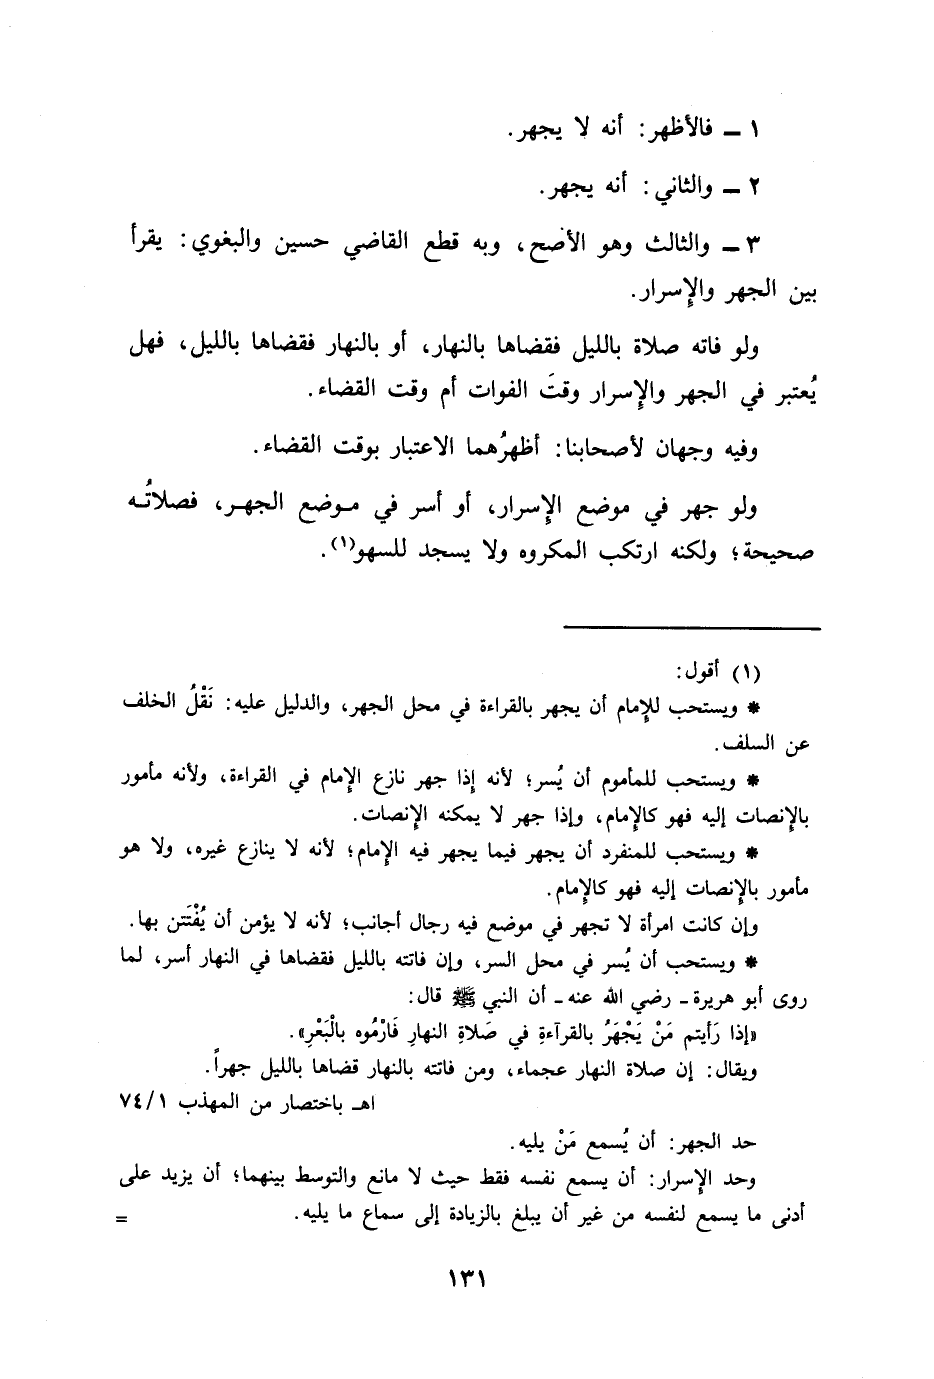 ١ ــ فالأظهر: أنه لا يجهر.
٢ ــ والثاني: أنه يجهر.
٣ ــ والثالث وهو الأضح، وبه قطع القاضي حسين والبغوي: يقرأ
بين الجهر والإسرار.
ولو فاته صلاة بالليل فقضاها بالنهار، أو بالنهار فقضاها بالليل، فهل
يُعتبر في الجهر والإسرار وقتَ الفوات أم وقت القضاء.
وفيه وجهان لأصحابنا: أظهرُهما الاعتبار بوقت القضاء.
ولو جهر في موضع الإسرار، أو أسر في مـوضع الجهـر، فصلاتُـه
صحيحة؛ ولكنه ارتكب المكروه ولا يسجد للسهو(١).
(١) أقول:
* ويستحب للإمام أن يجهر بالقراءة في محل الجهر، والدليل عليه: نَقْلُ الخلف
عن السلف.
* ويستحب للمأموم أن يُسر؛ لأنه إذا جهر نازع الإمام في القراءة، ولأنه مأمور
بالإنصات إليه فهو كالإمام، وإذا جهر لا يمكنه الإنصات.
* ويستحب للمنفرد أن يجهر فيما يجهر فيه الإمام؛ لأنه لا ينازع غيره، ولا هو
مأمور بالإنصات إليه فهو كالإمام.
وإن كانت امرأة لا تجهر في موضع فيه رجال أجانب؛ لأنه لا يؤمن أن يُفْتَتن بها.
* ويستحب أن يُسر في محل السر، وإن فاتته بالليل فقضاها في النهار أسر، لما
روى أبو هريرة ـ رضي الله عنه ـ أن النبي ﷺ قال:
«إذا رَأيتم مَنْ يَجْهَرُ بالقرآءةِ في صَلاةِ النهارِ فَارْمُوه بالْبَعْرِ».
ويقال: إن صلاة النهار عجماء، ومن فاتته بالنهار قضاها بالليل جهراً.
اهـ باختصار من المهذب ٧٤/١
حد الجهر: أن يُسمع مَنْ يليه.
وحد الإسرار: أن يسمع نفسه فقط حيث لا مانع والتوسط بينهما؛ أن يزيد على
أدنى ما يسمع لنفسه من غير أن يبلغ بالزيادة إلى سماع ما يليه. =
١٣١